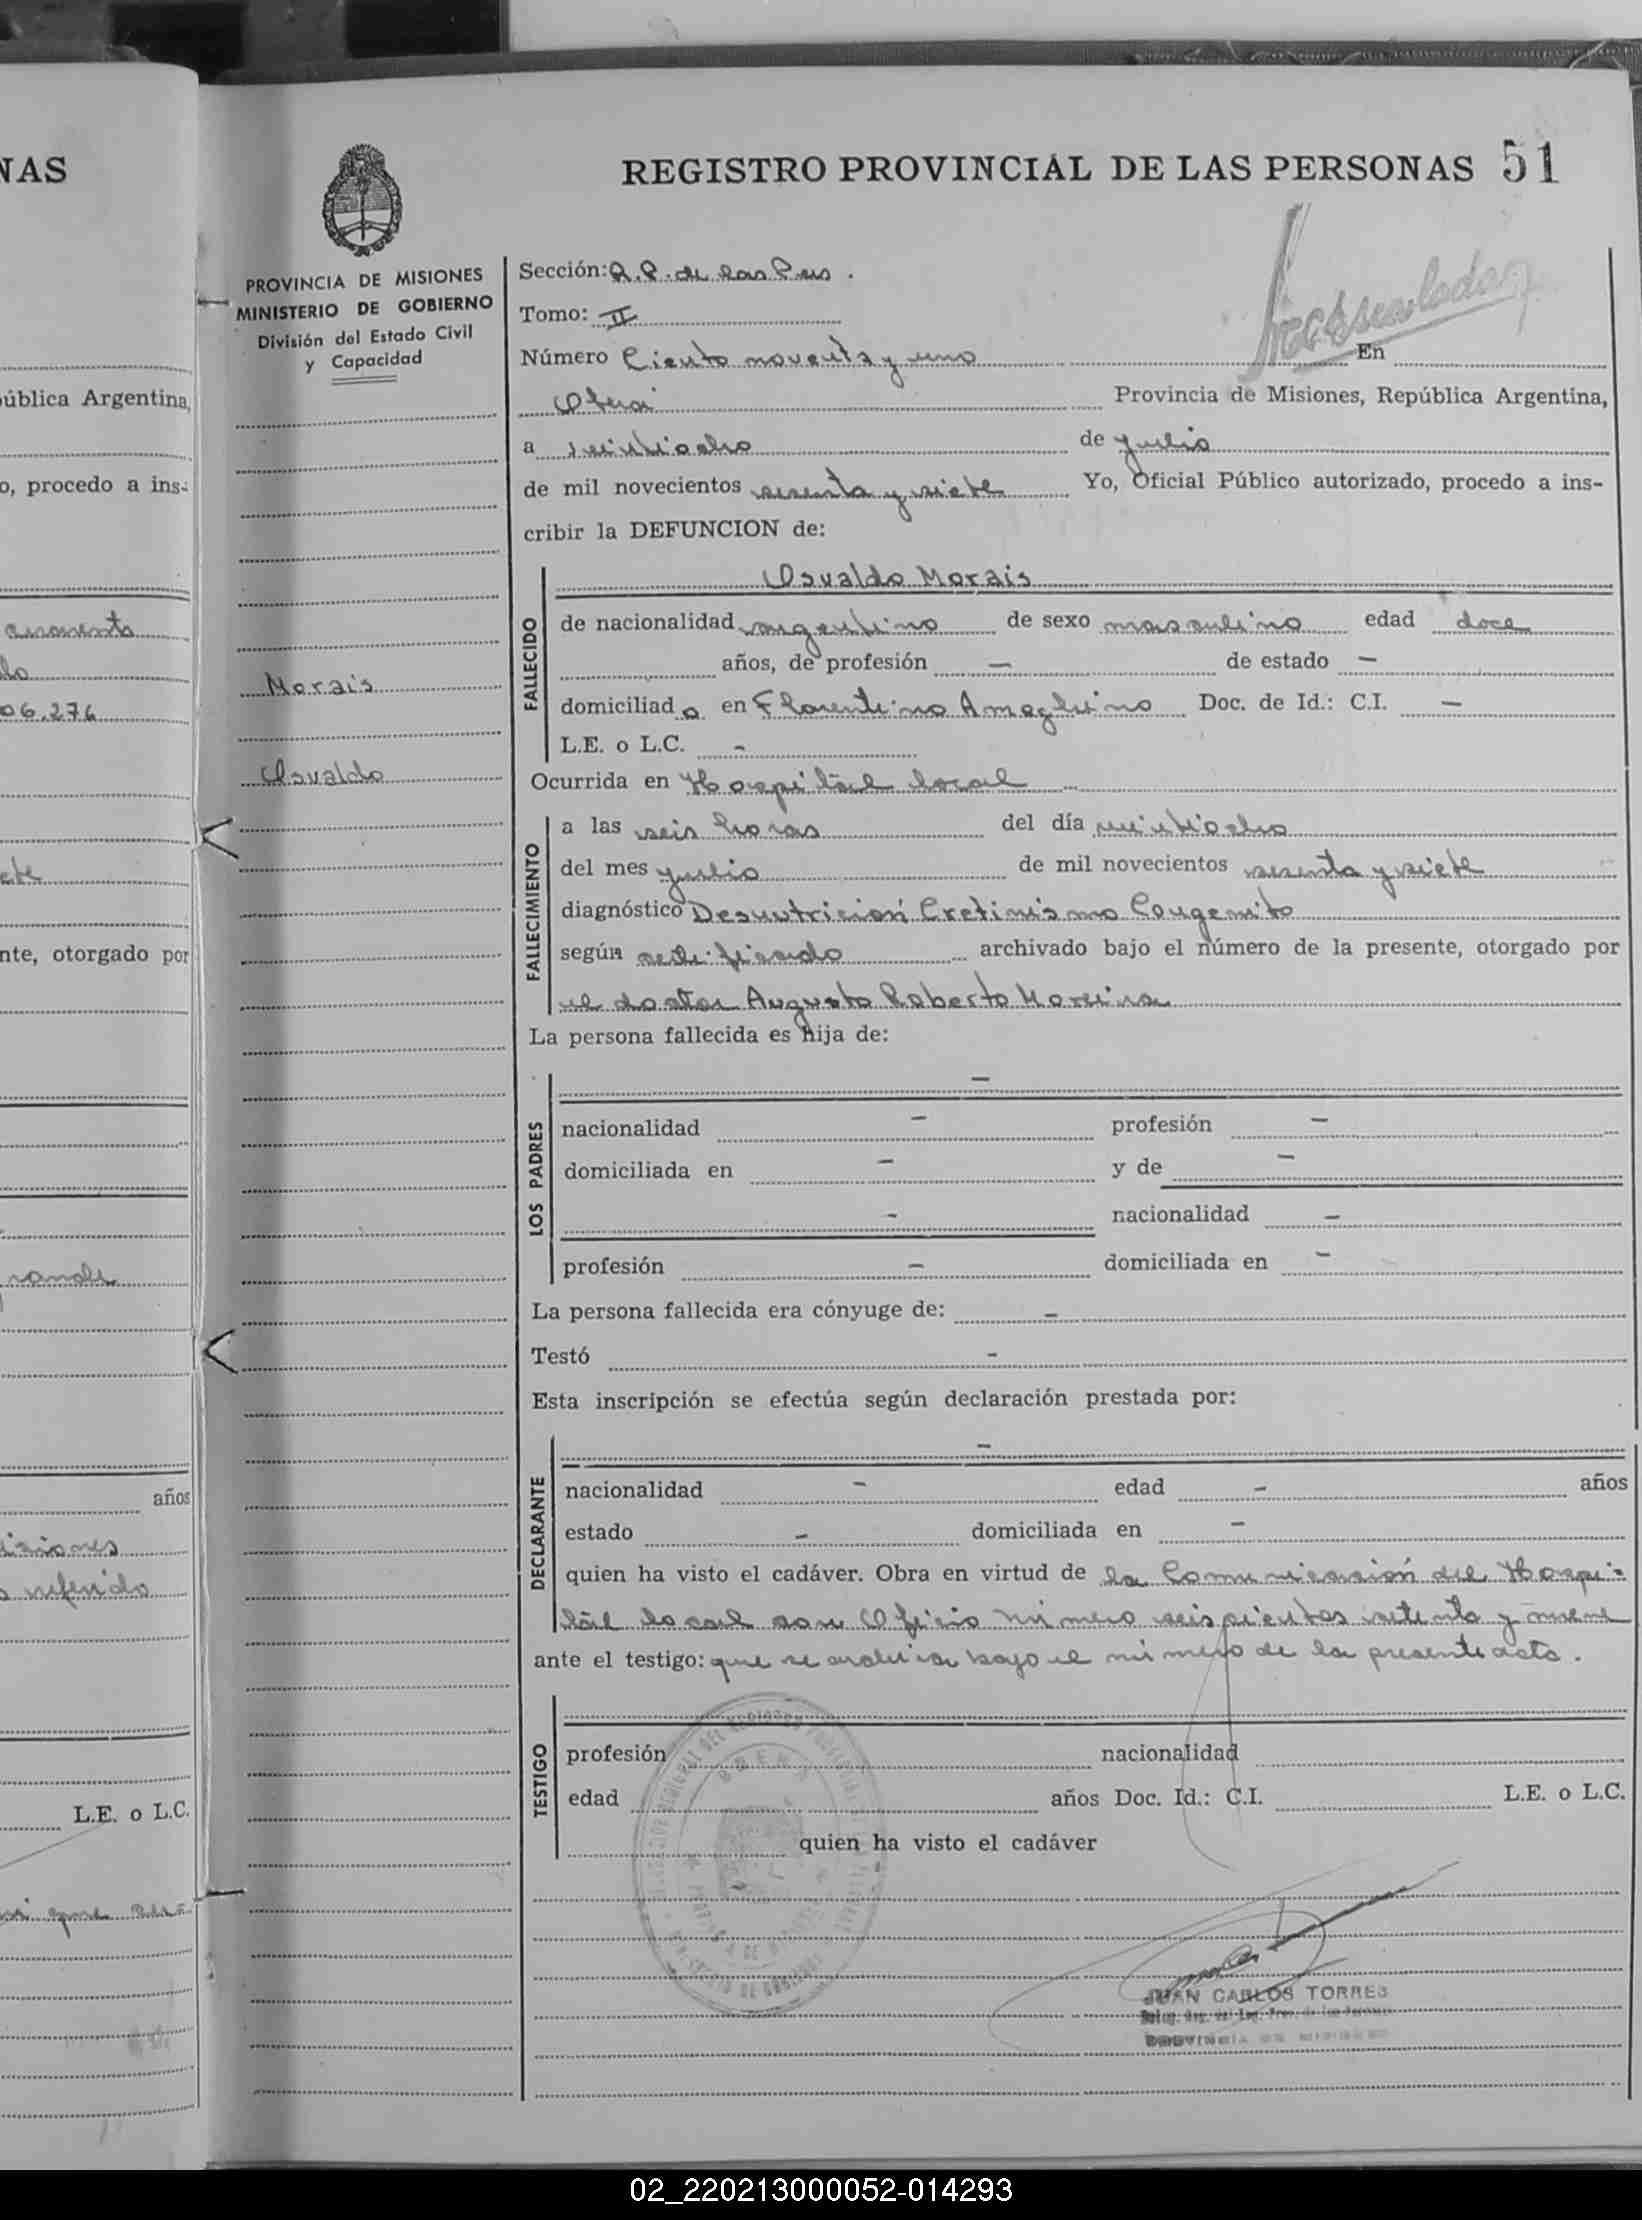 NAS
REGISTRO PROVINCIAL DE LAS PERSONAS 51
PROVINCIA DE MISIONES
MINISTERIO DE GOBIERNO
División del Estado Civil
y Capacidad
Sección: R.P. de las Pers.
Tomo: II
Número Ciento noventa y uno En
Oberá Provincia de Misiones, República Argentina,
a veintiocho de julio
de mil novecientos sesenta y siete Yo, Oficial Público autorizado, procedo a ins-
cribir la DEFUNCION de:
Osvaldo Morais
FALLECIDO
de nacionalidad argentino de sexo masculino edad doce
años, de profesión — de estado —
Morais
domiciliado en Florentino Ameghino Doc. de Id.: C.I. —
L.E. o L.C. -
Osvaldo
Ocurrida en Hospital local
FALLECIMIENTO
a las seis horas del día veintiocho
del mes julio de mil novecientos sesenta y siete
diagnóstico Desnutricion Cretinismo Congenito
según certificado archivado bajo el número de la presente, otorgado por
el doctor Augusto Roberto Moreira
La persona fallecida es hija de:
LOS PADRES
—
nacionalidad — profesión —
domiciliada en — y de —
- nacionalidad —
profesión — domiciliada en —
La persona fallecida era cónyuge de: —
Testó -
Esta inscripción se efectúa según declaración prestada por:
DECLARANTE
—
nacionalidad - edad - años
estado - domiciliada en -
quien ha visto el cadáver. Obra en virtud de la Comunicación del Hospi-
tal local con Oficio número seiscientos setenta y nueve
ante el testigo: que se archiva bajo el número de la presente acta.
TESTIGO
profesión nacionalidad
edad años Doc. Id.: C.I. L.E. o L.C.
quien ha visto el cadáver
JUAN CARLOS TORRES
pública Argentina,
o, procedo a ins-
06.276
nte, otorgado por
años
L.E. o L.C.
02_220213000052-014293